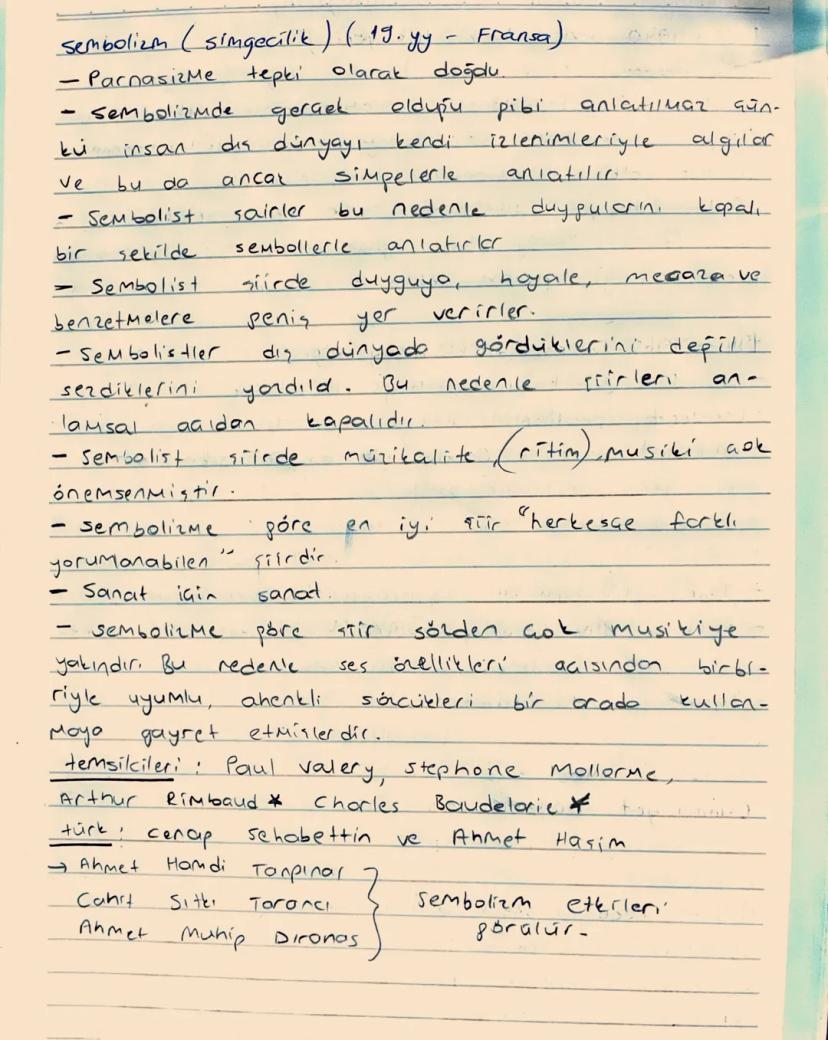 sembolizm ( simgecilik ) ( 19.yy - Fransa)
- Parnasizme tepki olarak doğdu.
- Sembolizmde gerçek olduğu gibi anlatılmaz çün-
kü insan dış dünyayı kendi izlenimleriyle algılar
ve bu da ancak simgelerle anlatılır.
- Sembolist şairler bu nedenle duygularını kapalı
bir şekilde sembollerle anlatırlar
- Sembolist şiirde duyguya, hayale, mecaza ve
benzetmelere geniş yer verirler.
- Sembolistler dış dünyada gördüklerini değil
sezdiklerini yazdılar. Bu nedenle şiirleri an-
lamsal açıdan kapalıdır.
- Sembolist şiirde müzikalite, (ritim), musiki çok
önemsenmiştir.
- sembolizme göre en iyi şiir "herkesçe farklı
yorumanabilen" şiirdir.
- Sanat için sanat.
- sembolizme göre şiir sözden çok musikiye
yakındır. Bu nedenle ses özellikleri açısından birbi-
riyle uyumlu, ahenkli sözcükleri bir arada kullan-
maya gayret etmişlerdir.
temsilcileri : Paul Valery, stephone Mallarme,
Arthur Rimbaud * Charles Baudelarie *
türk : cenap sehabettin ve Ahmet Haşim
→ Ahmet Hamdi Tanpınar
Cahit Sıtkı Tarancı
Ahmet Muhip Dıranas
sembolizm etkileri
görülür.